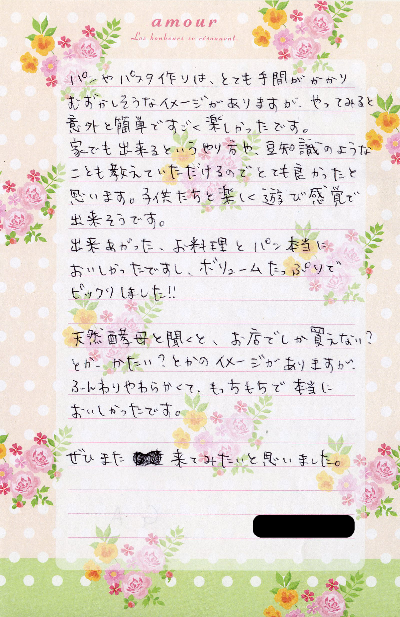 amour
Les bonheurs se réunissent
パンやパスタ作りは、とても手間がかかり
むずかしそうなイメージがありますが、やってみると
意外と簡単ですごく楽しかったです。
家でも出来るというやり方や、豆知識のような
ことも教えていただけるのでとても良かったと
思います。子供たちと楽しく遊び感覚で
出来そうです。
出来あがった、お料理とパン本当に
おいしかったですし、ボリュームたっぷりで
ビックリしました!!
天然酵母と聞くと、お店でしか買えない?
とか、かたい?とかのイメージがありますが、
ふんわりやわらかくて、もっちもちで本当に
おいしかったです。
ぜひまた 来てみたいと思いました。